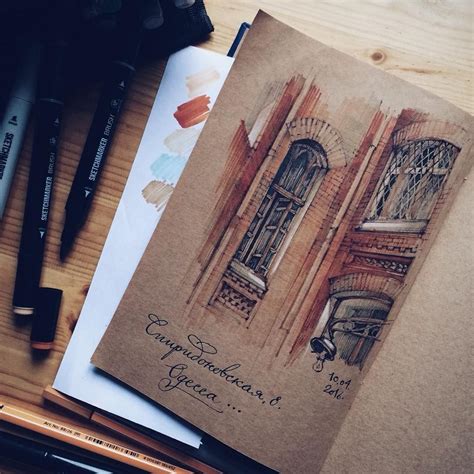 SKETCHMARKER BRUSH
SKETCHMARKER BRUSH
SKETCHMARKER
Спиридоновская, 8.
Одесса ...
10.01
2016.